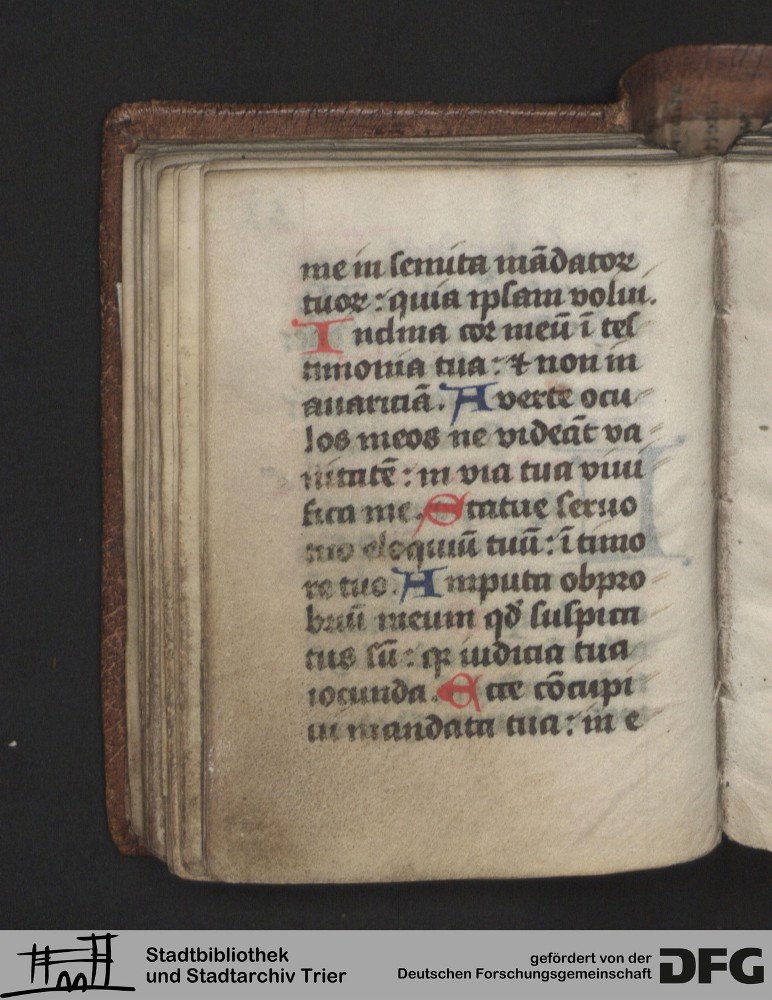 me in semita mādatoꝝ
tuoꝝ : quia ipsam volui.
Inclina cor meū ī tes
timonia tua : ⁊ non in
auariciā. Auerte ocu
los meos ne videāt va
nitatē : in via tua viui
fica me. Statue seruo
tuo eloquiū tuū : ī timo
re tuo. Amputa obpro
briū meum qd̓ suspica
tus sū : qꝛ iudicia tua
iocunda. Ecce cōcupi
ui mandata tua : in e
Stadtbibliothek
und Stadtarchiv Trier
gefördert von der
Deutschen Forschungsgemeinschaft DFG